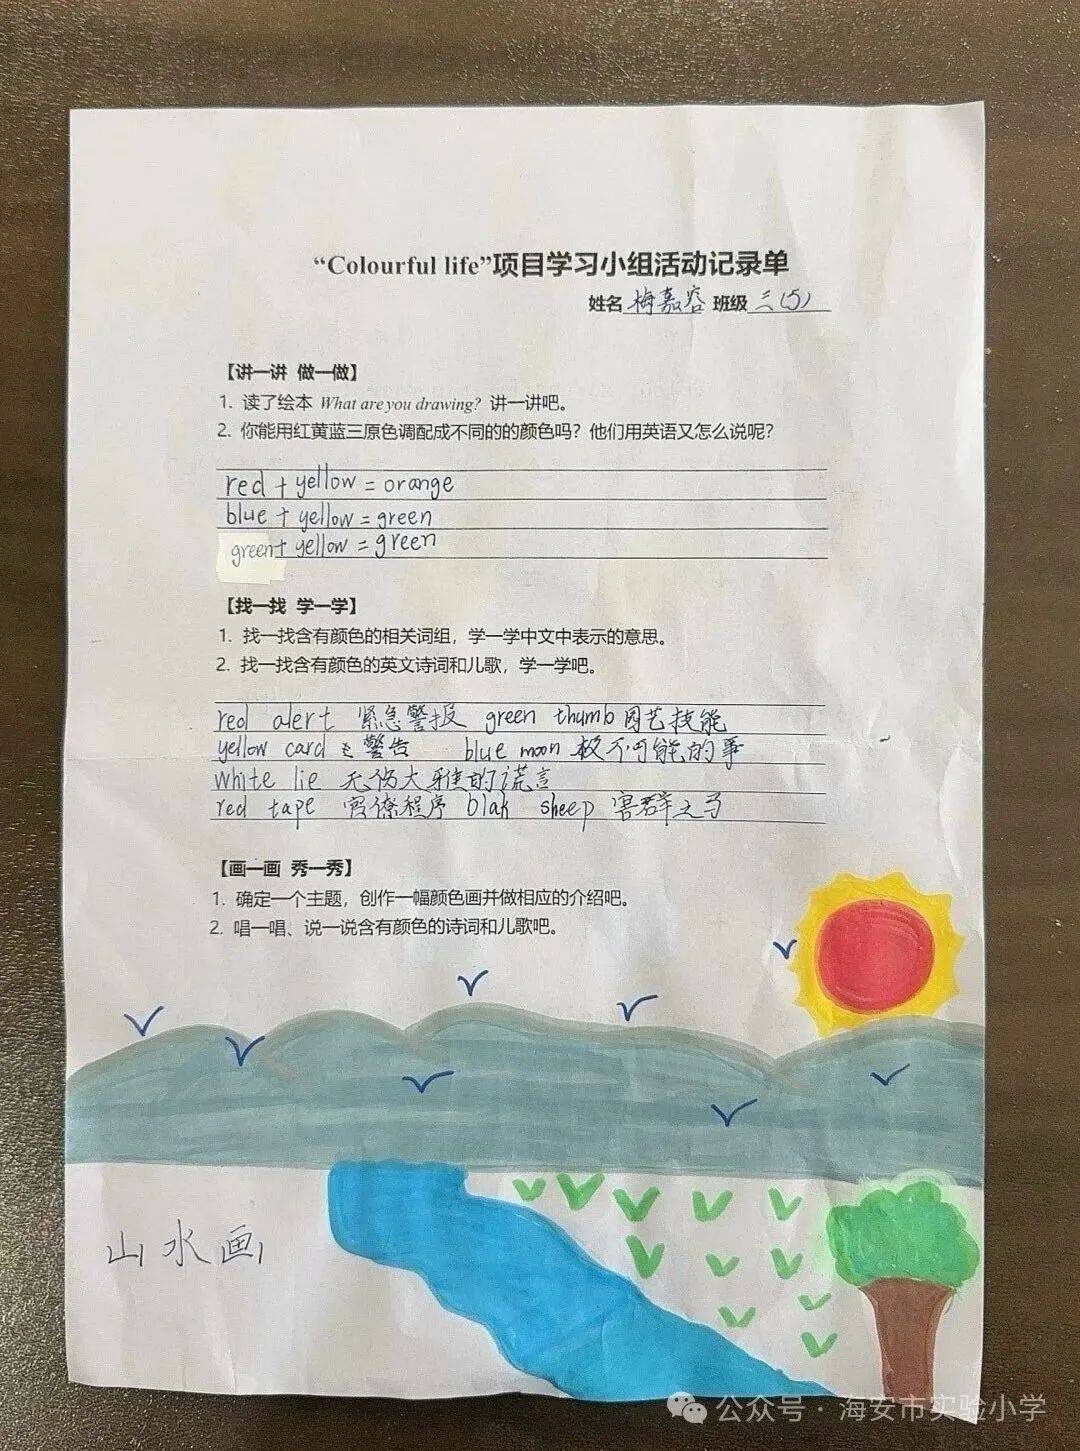 “Colourful life”项目学习小组活动记录单
姓名 梅嘉容 班级 三(5)
【讲一讲 做一做】
1. 读了绘本 What are you drawing? 讲一讲吧。
2. 你能用红黄蓝三原色调配成不同的的颜色吗？他们用英语又怎么说呢？
red + yellow = orange
blue + yellow = green
green + yellow = green
【找一找 学一学】
1. 找一找含有颜色的相关词组，学一学中文中表示的意思。
2. 找一找含有颜色的英文诗词和儿歌，学一学吧。
red alert 紧急警报 green thumb 园艺技能
yellow card 警告 blue moon 极不可能的事
white lie 无伤大雅的谎言
red tape 官僚程序 blak sheep 害群之马
【画一画 秀一秀】
1. 确定一个主题，创作一幅颜色画并做相应的介绍吧。
2. 唱一唱、说一说含有颜色的诗词和儿歌吧。
山水画
公众号·海安市实验小学